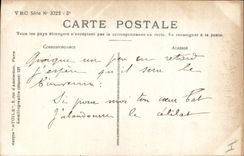 V BC Série N° 3323 - 2°
CARTE POSTALE
Tous les pays étrangers n'acceptent pas la correspondance au recto. (Se renseigner à la poste).
Correspondance
Adresse
Quoique un peu en retard
j'espère qu'il sera le
bienvenu
Si pour moi ton cœur bat
J'abandonne le célibat